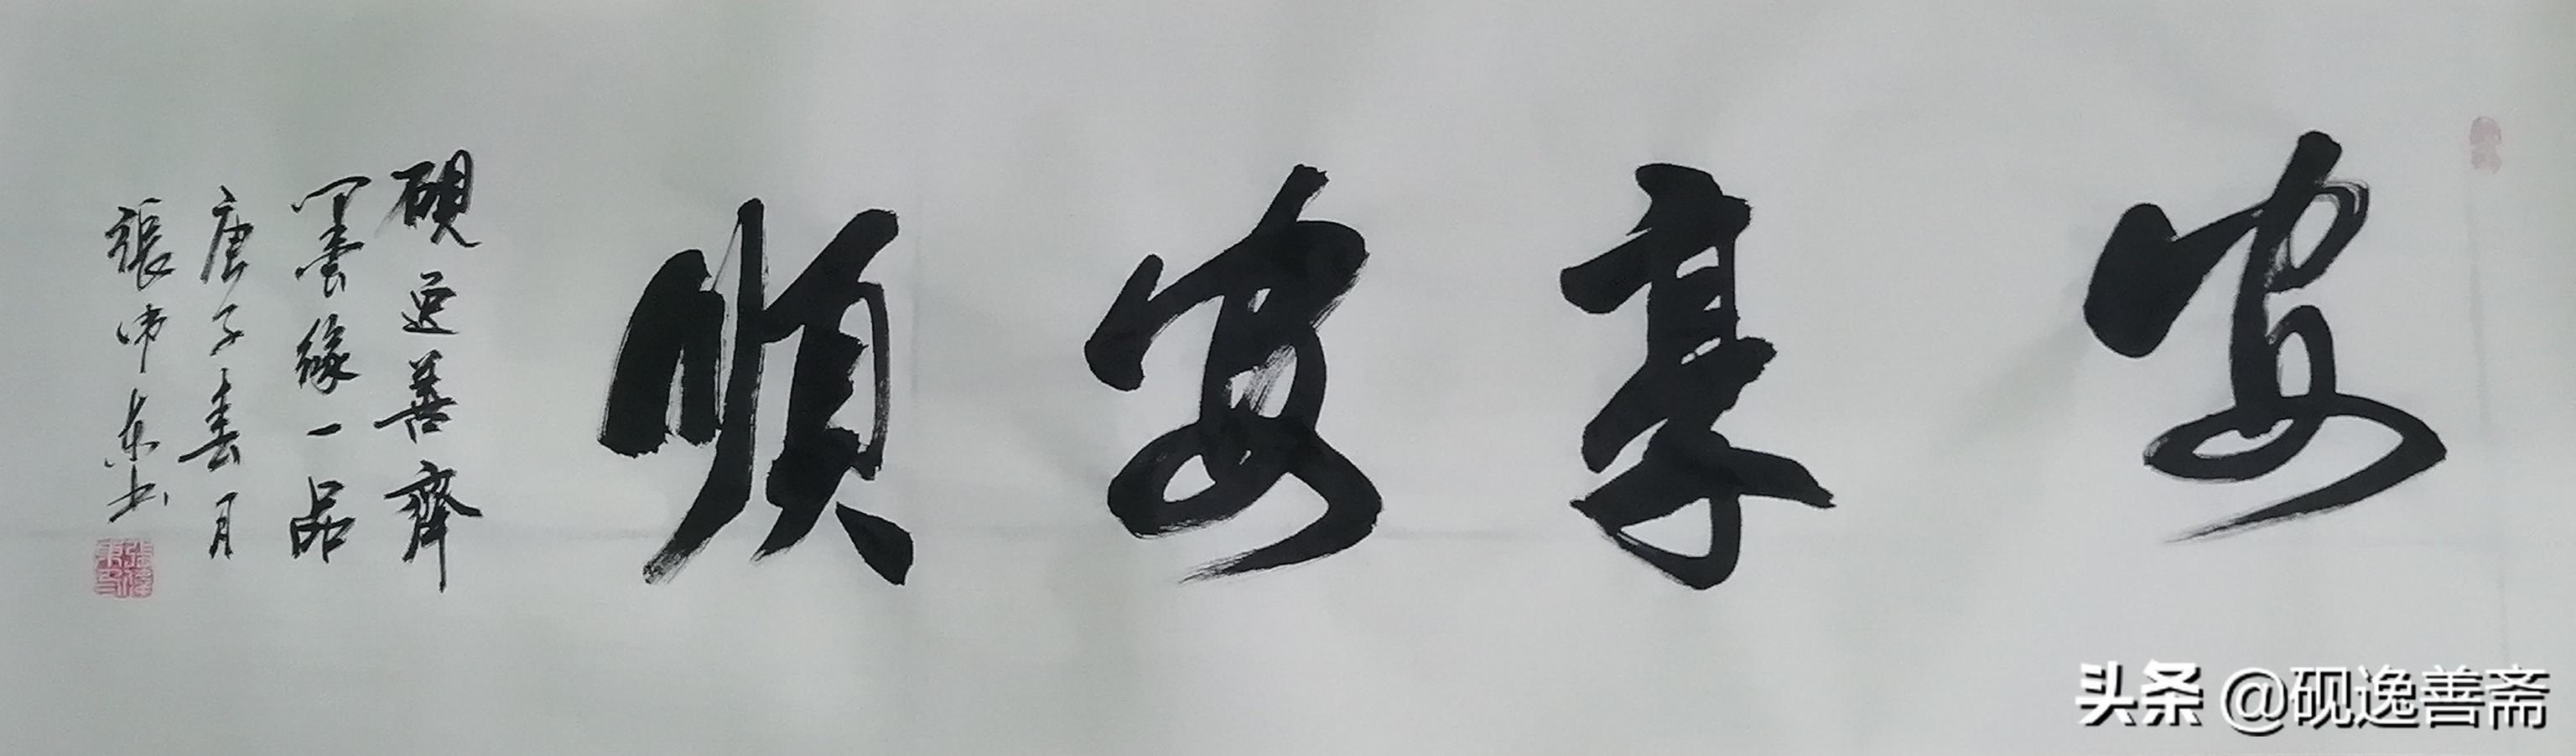 安享安順
硯逸善齋
墨緣一品
庚子春月
張偉东书
头条 @砚逸善斋